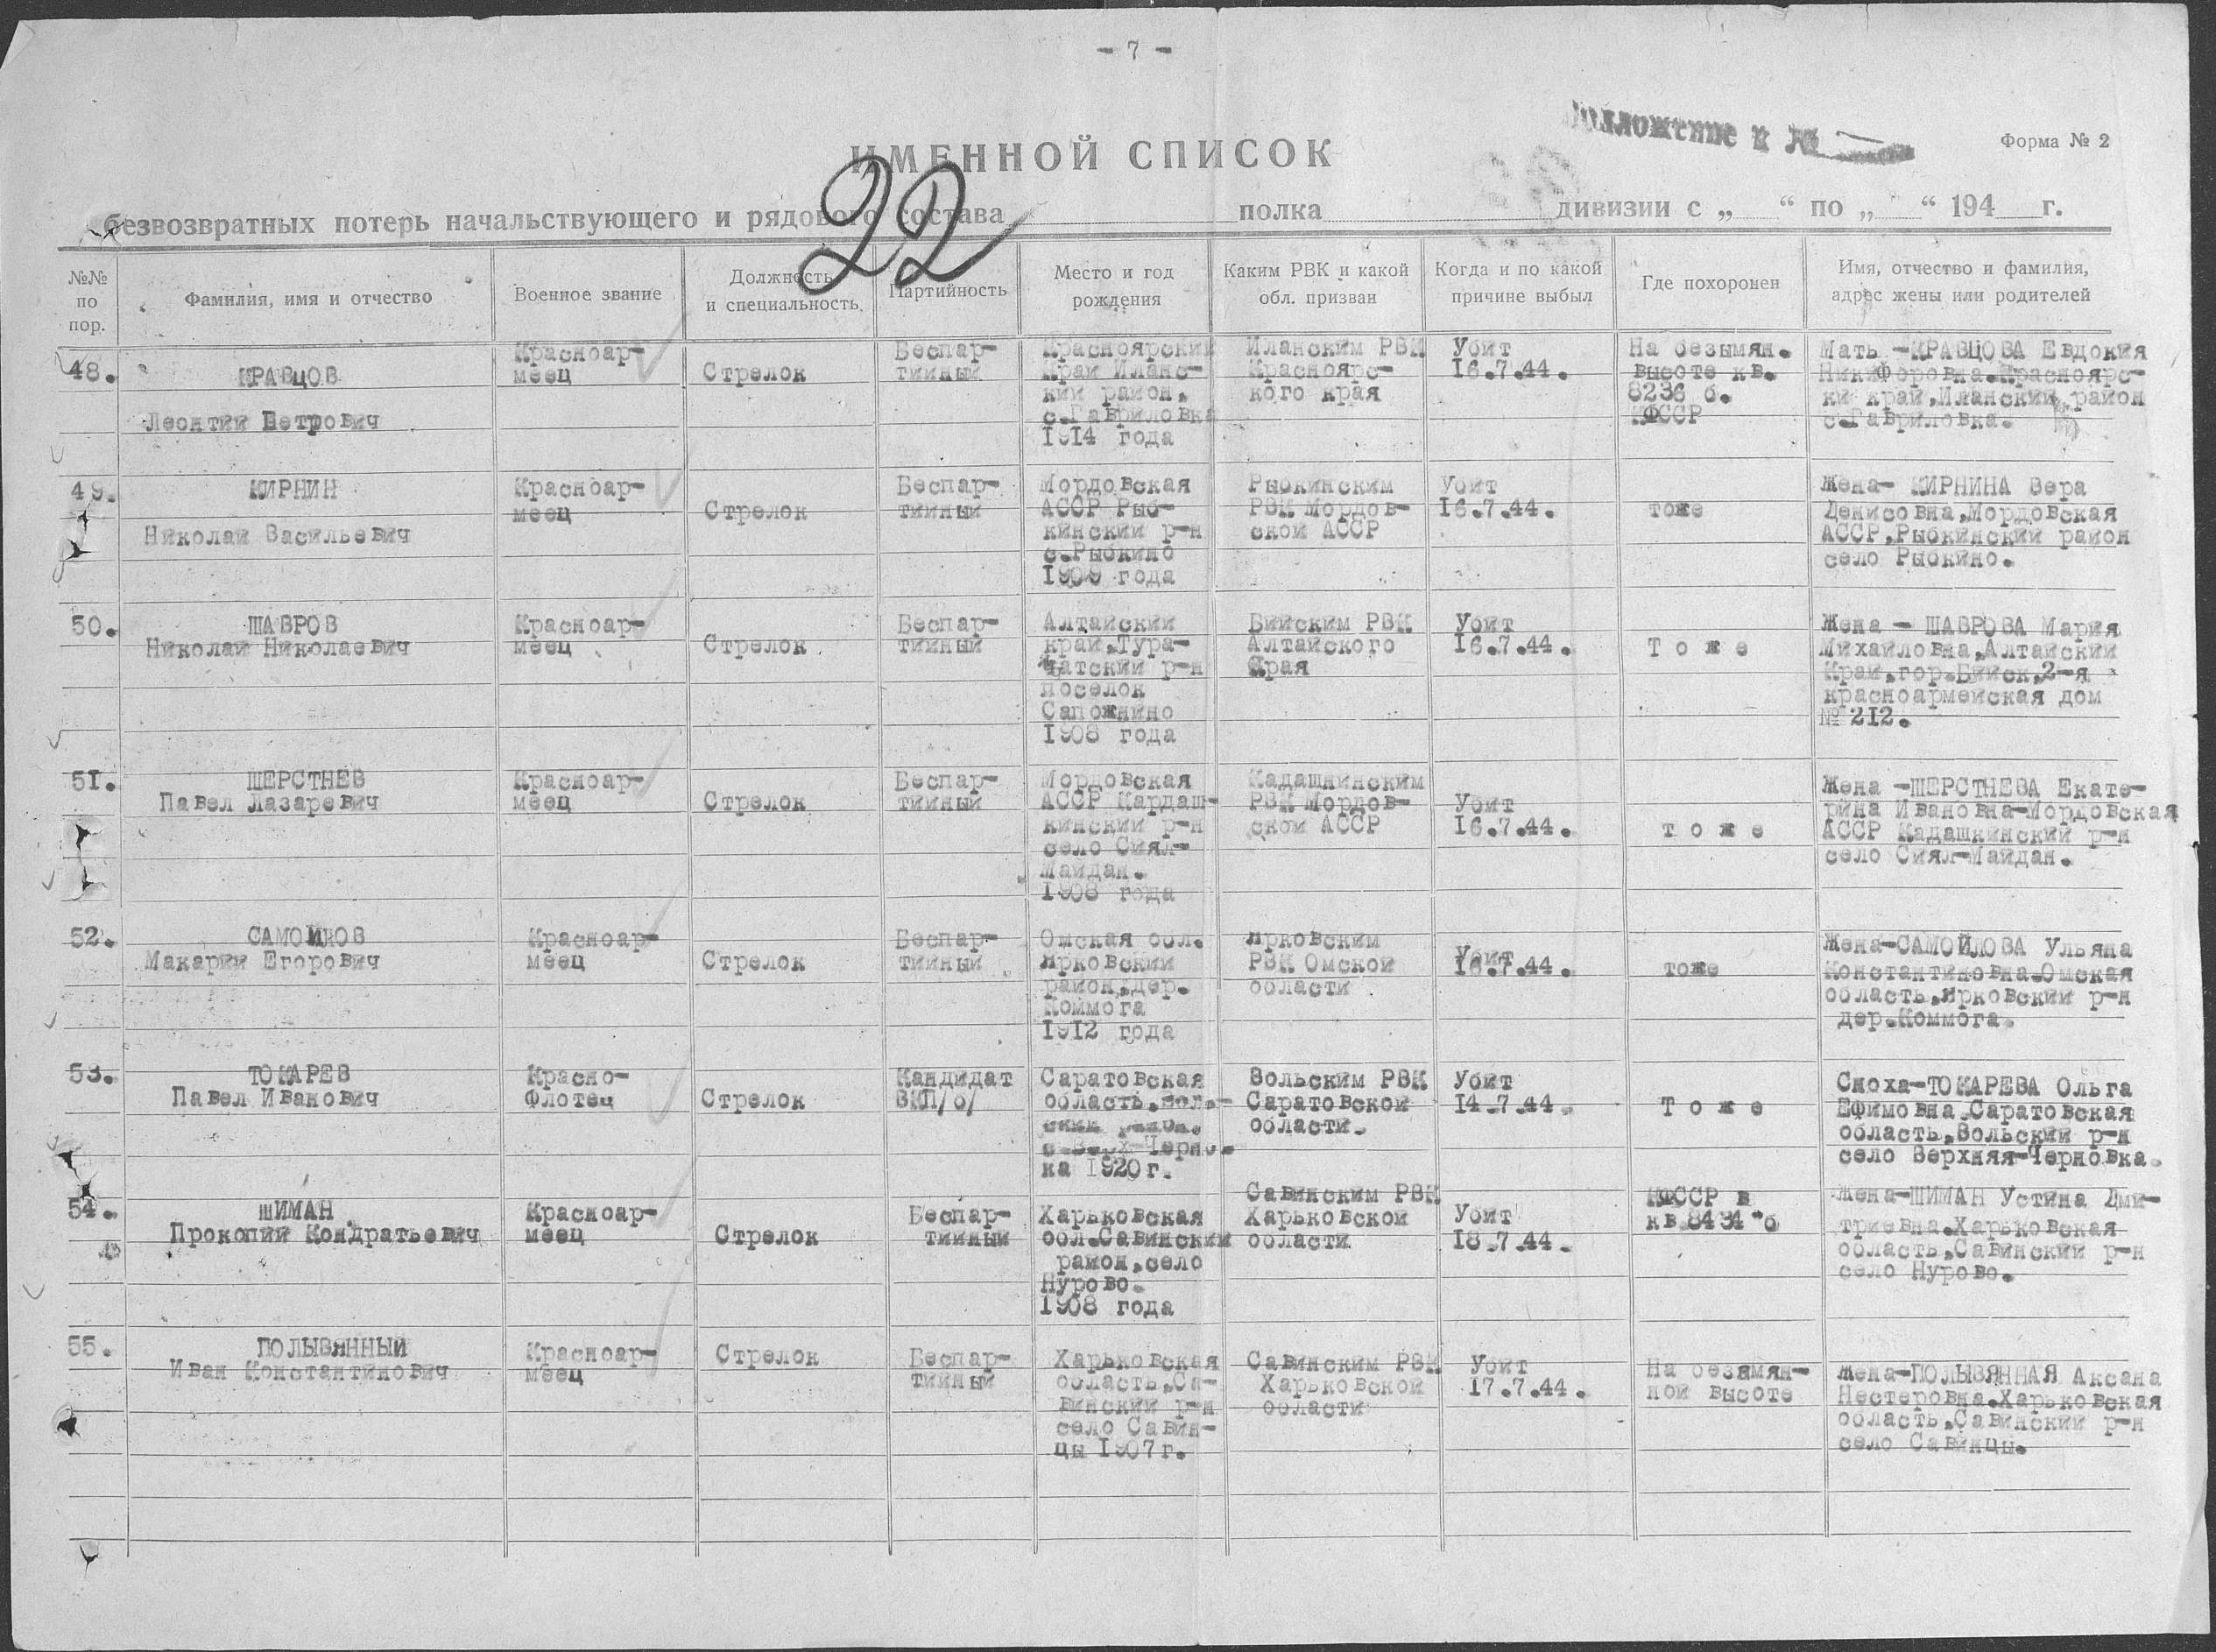 - 7 -
Приложение к №
Форма № 2
ИМЕННОЙ СПИСОК
22
безвозвратных потерь начальствующего и рядового состава полка дивизии с „ “ по „ “ 194 г.
№№
по
пор.
Фамилия, имя и отчество
Военное звание
Должность
и специальность
Партийность
Место и год
рождения
Каким РВК и какой
обл. призван
Когда и по какой
причине выбыл
Где похоронен
Имя, отчество и фамилия,
адрес жены или родителей
48.
КРАВЦОВ
Леонтий Петрович
Красноар-
меец
Стрелок
Беспар-
тийный
Красноярский
Край Иланс-
кий район,
с.Гавриловка
1914 года
Иланским РВК
Красноярс-
кого края
Убит
16.7.44.
На безымян.
высоте кв.
8236 б.
КФССР
Мать -КРАВЦОВА Евдокия
Никифоровна.Красноярс-
ки край,Иланский район
с.Гавриловка.
49.
КИРНИН
Николай Васильевич
Красноар-
меец
Стрелок
Беспар-
тийный
Мордовская
АССР Рыб-
кинский р-н
с.Рыбкино
1909 года
Рыбкинским
РВК Мордов-
ской АССР
Убит
16.7.44.
тоже
Жена- КИРНИНА Вера
Денисовна,Мордовская
АССР,Рыбкинский район
село Рыбкино.
50.
ШАВРОВ
Николай Николаевич
Красноар-
меец
Стрелок
Беспар-
тийный
Алтайский
край,Тура-
чатский р-н
поселок
Сапожнино
1908 года
Бийским РВК
Алтайского
Края
Убит
16.7.44.
Тоже
Жена - ШАВРОВА Мария
Михайловна,Алтайский
Край,гор.Бийск,2-я
красноармейская дом
№ 212.
51.
ШЕРСТНЕВ
Павел Лазаревич
Красноар-
меец
Стрелок
Беспар-
тийный
Мордовская
АССР Кардаш-
кинский р-н
село Сиял-
Майдан.
1908 года
Кадашкинским
РВК Мордов-
ской АССР
Убит
16.7.44.
тоже
Жена -ШЕРСТНЕВА Екате-
рина Ивановна-Мордовская
АССР Кадашкинский р-н
село Сиял-Майдан.
52.
САМОЙЛОВ
Макарий Егорович
Красноар-
меец
Стрелок
Беспар-
тийный
Омская обл.
Ярковский
район,дер.
Коммога
1912 года
Ярковским
РВК Омской
области
Убит
16.7.44.
тоже
Жена-САМОЙЛОВА Ульяна
Константиновна.Омская
область,Ярковский р-н
дер.Коммога.
53.
ТОКАРЕВ
Павел Иванович
Красно-
флотец
Стрелок
Кандидат
ВКП/б/
Саратовская
область,вол-
ский район.
с-Верх-Чернов-
ка 1920г.
Вольским РВК
Саратовской
области.
Убит
14.7.44.
Тоже
Сноха-ТОКАРЕВА Ольга
Ефимовна.Саратовская
область,Вольский р-н
село Верхняя-Черновка.
54.
ШИМАН
Прокопий Кондратьевич
Красноар-
меец
Стрелок
Беспар-
тийный
Харьковская
обл.Савинский
район,село
Нурово.
1908 года
Савинским РВК
Харьковской
области
Убит
18.7.44.
КФССР в
кв.8434-б
Жена-ШИМАН Устина Дми-
триевна.Харьковская
область,Савинский р-н
село Нурово.
55.
ПОЛЫВЯННЫЙ
Иван Константинович
Красноар-
меец
Стрелок
Беспар-
тийный
Харьковская
область,Са-
винский р-н
село Савин-
цы 1907г.
Савинским РВК
Харьковской
области
Убит
17.7.44.
На безямян-
ной высоте
Жена-ПОЛЫВЯННАЯ Аксана
Нестеровна.Харьковская
область,Савинский р-н
село Савинцы.